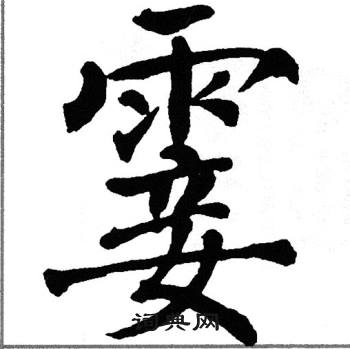 霎
词典网